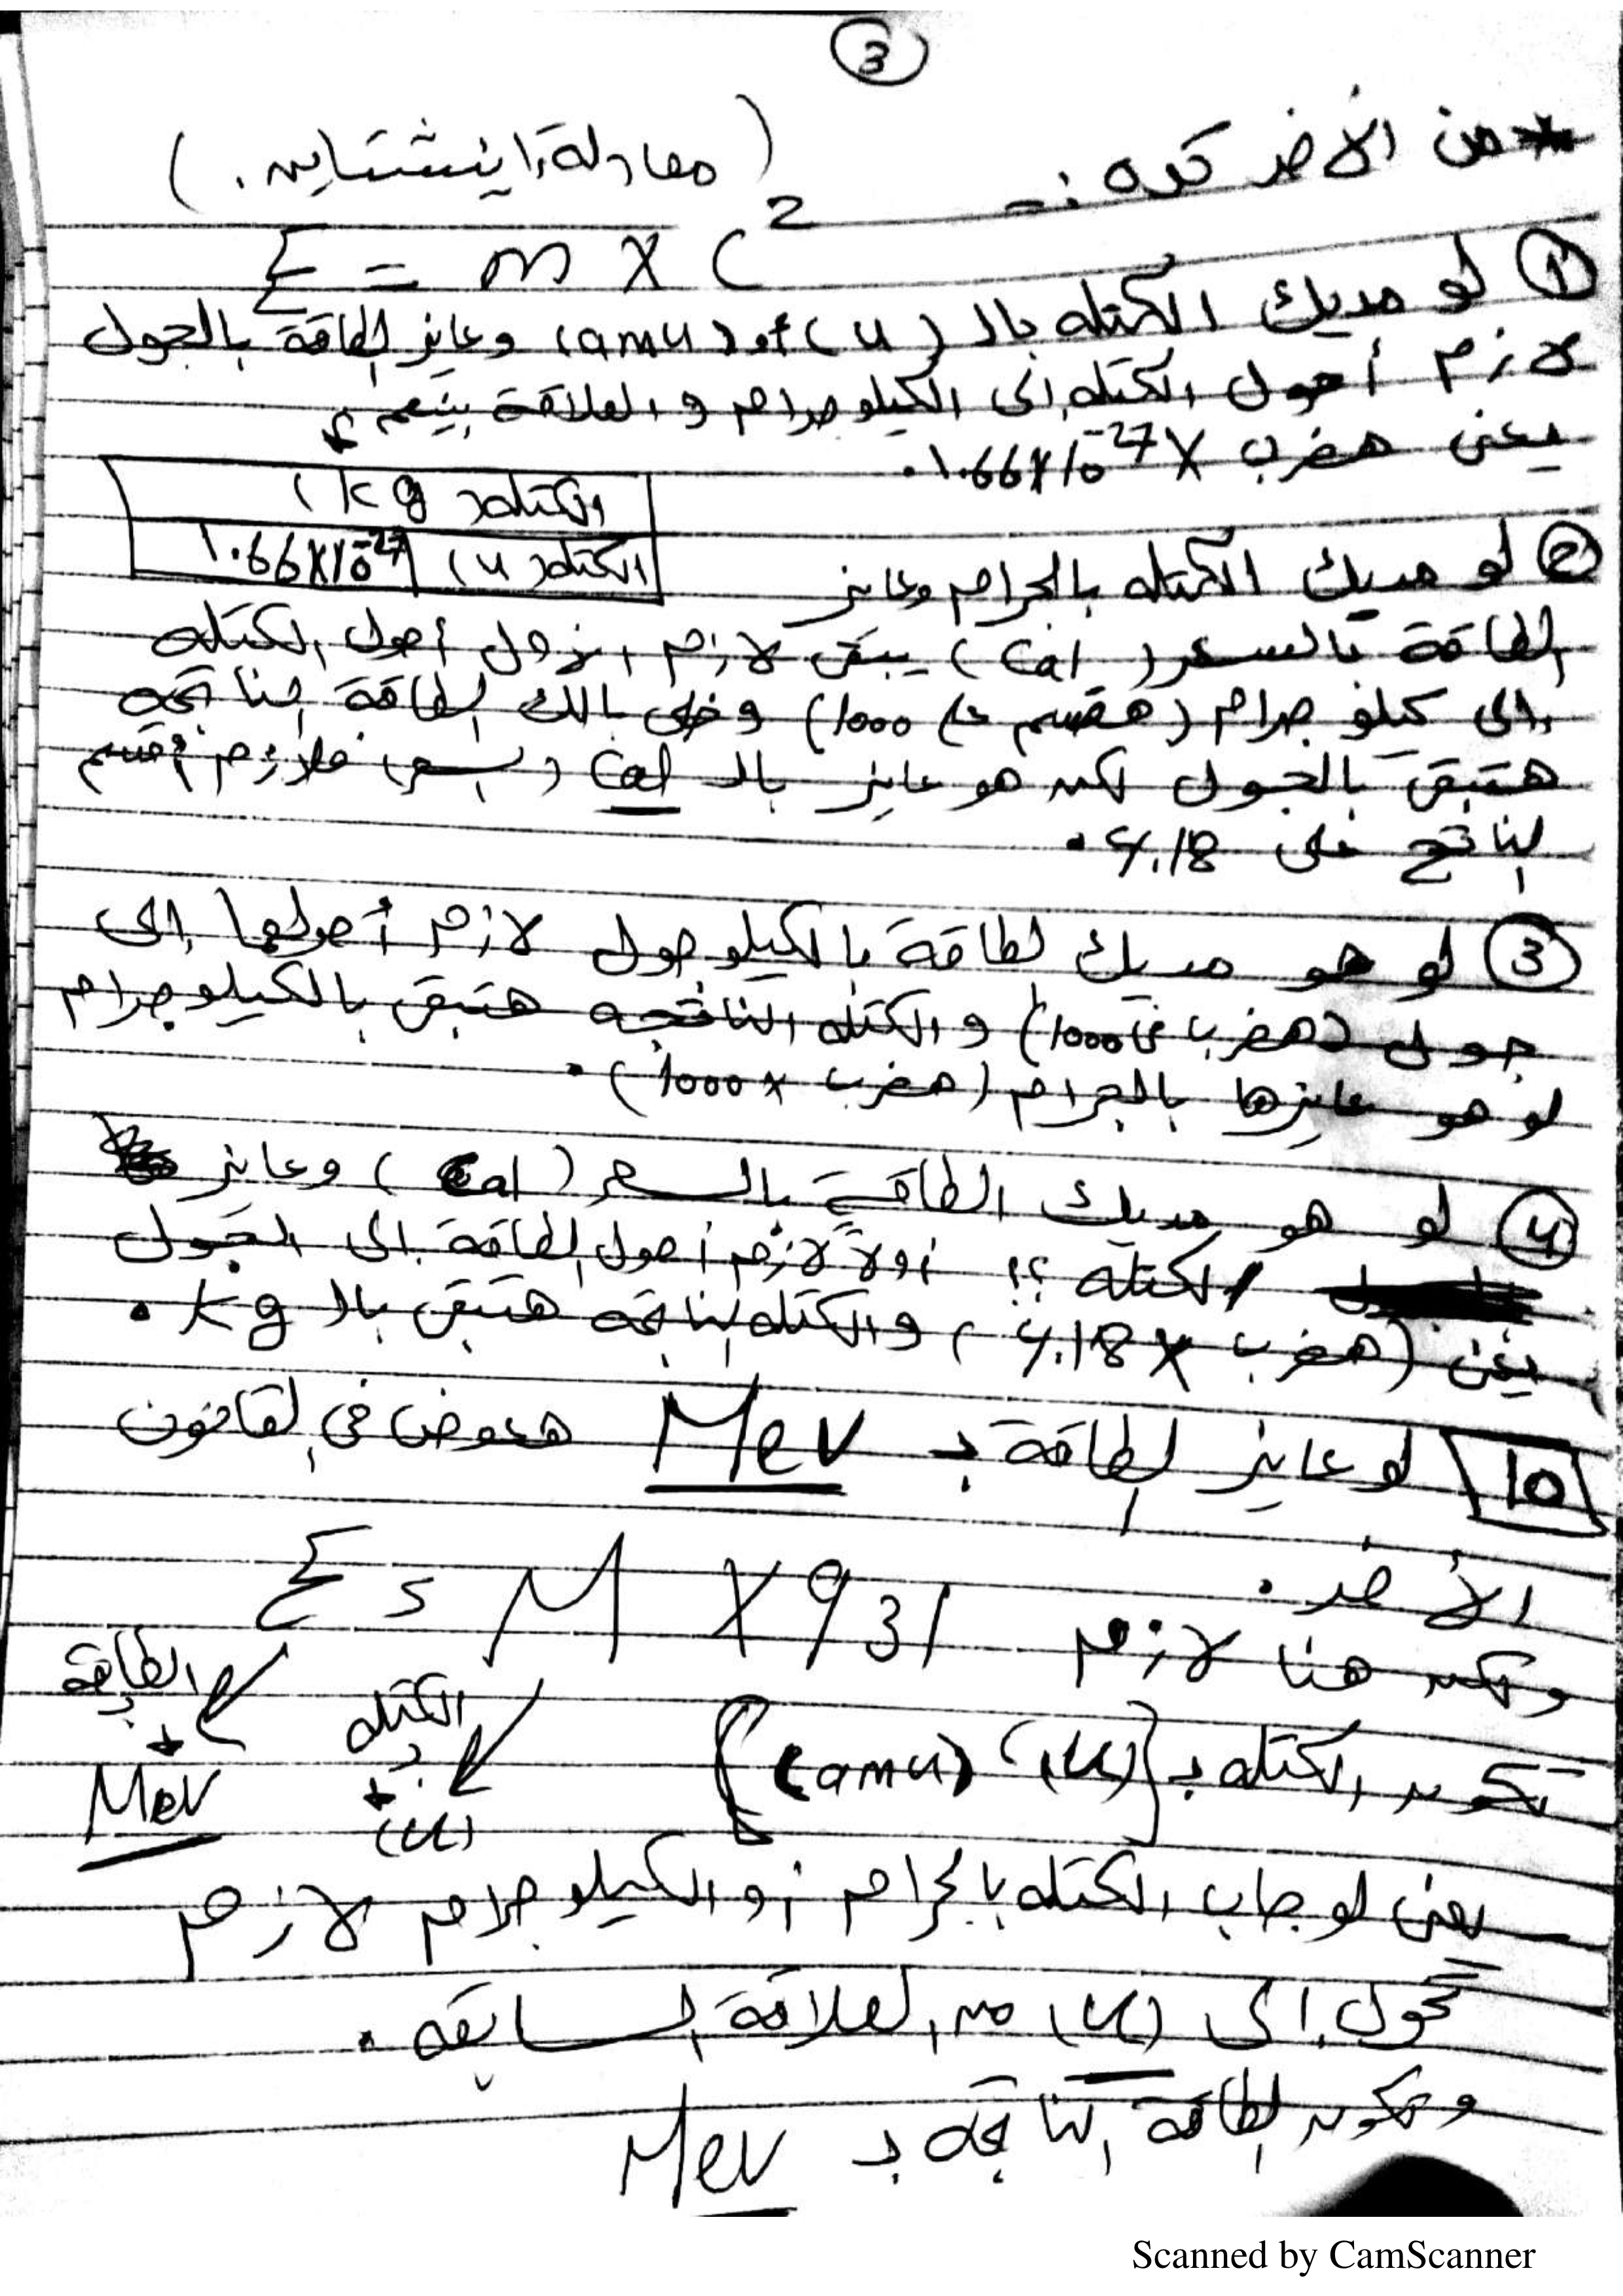 3
* من الآخر كده :-
(معادلة اينشتاين.)
E = m x C²
① لو مديك الكتله بالـ (u) أو (amu) وعايز الطاقة بالجول
لازم أحول الكتله إلى الكيلو جرام و العلاقة بينهم
يعنى هضرب 1.66x10⁻²⁷ x.
الكتله (kg)
الكتله (u) 1.66x10⁻²⁷
② لو مديك الكتله بالجرام وعايز
الطاقة بالسعر (Cal) يبقى لازم الأول أحول الكتله
إلى كيلو جرام (هقسم على 1000) وخلى بالك الطاقة الناتجه
هتبقى بالجول لكن هو عايز بالـ Cal (سعر) فلازم أقسم
الناتج على 4.18.
③ لو هو مديك الطاقة بالكيلو جول لازم أحولها إلى
جول (هضرب فى 1000) و الكتله الناتجه هتبقى بالكيلو جرام
لو هو عايزها بالجرام (هضرب x 1000).
④ لو هو مديك الطاقة بالسعر (Cal) وعايز
الكتله ؟؟ أولاً لازم أحول الطاقة إلى الجول
يعنى (هضرب x 4.18) و الكتله الناتجه هتبقى بالـ kg.
10 لو عايز الطاقة بـ Mev هعوض فى القانون
الأخر.
E = M X 931
ولكن هنا لازم
الطاقة
الكتله
تكون الكتله بـ {(u), (amu)}
Mev
(u)
يعنى لو جاب الكتله بالجرام أو الكيلو جرام لازم
تحول إلى (u) من العلاقة السابقه.
وتكون الطاقة الناتجه بـ Mev
Scanned by CamScanner